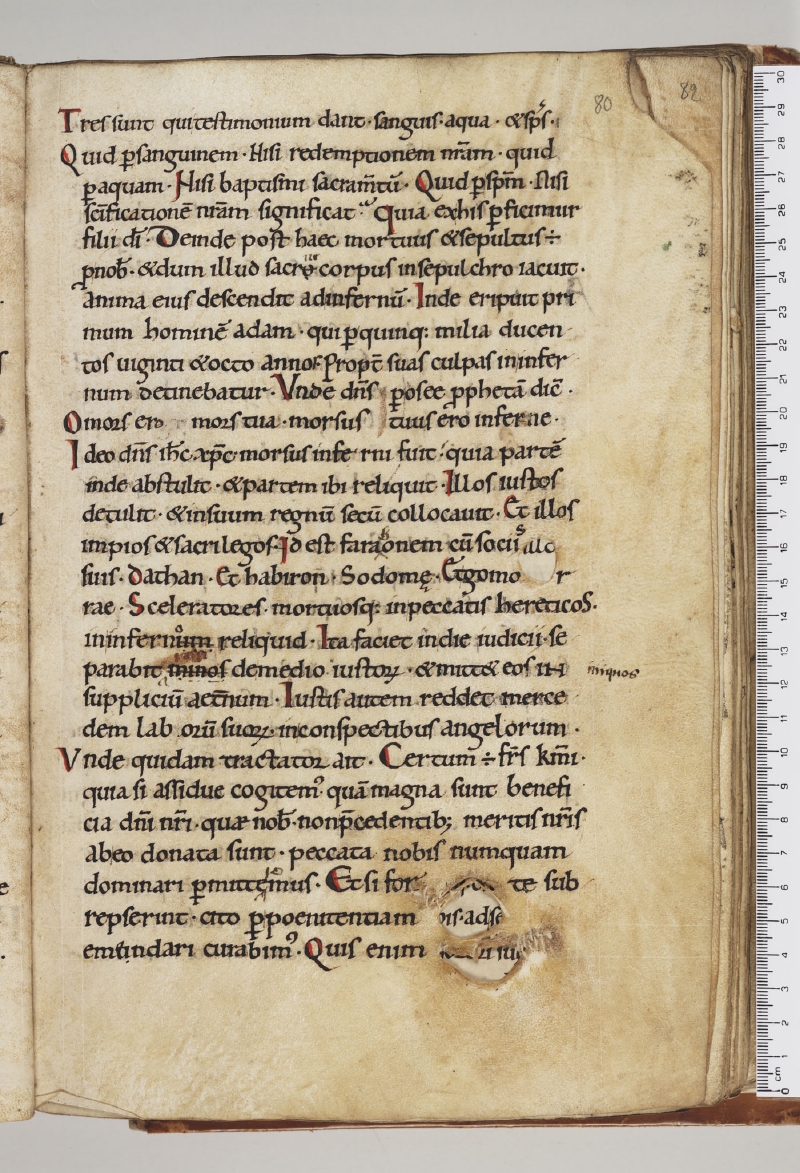 80 82
Tres sunt qui testimonium dant · sanguis · aqua · & sp̄s ·
Quid ꝑ sanguinem · Nisi redemptionem nr̄am · quid
ꝑ aquam · Nisi baptismi sacram̄tū · Quid ꝑ sp̄m · Nisi
sc̄ificationē nr̄am significat · Quia ex his ꝑficimur
filii dī · Deinde post haec mortuus & sepultus ÷
ꝓ nob̄ · & dum illud sacrū corpus in sepulchro iacuit ·
anima eius descendit ad infernū · Inde eripuit pri
mum hominē adam · qui ꝑ quinq: milia ducen
tos uiginti & octo annos Propt̄ suas culpas in infer
num detinebatur · Vnde dn̄s ꝑ osee ꝓphetā diē ·
O mors ero mors tua · morsus tuus ero inferne ·
Ideo dn̄s ih̄c xp̄c · morsus inferni fuit · quia partē
inde abstulit · & partem ibi reliquit · Illos iustos
detulit · & in suum regnū secū collocauit · Et illos
impios & sacrilegos · Id est faraonem cū sociis
suis · Dathan · Et habiron · Sodomę · Et gomo r
rae · Sceleratores · mortuosq: in peccatis hereticos ·
in infernum reliquid · Ita faciet in die iudicii · se
parabit de medio iustoꝝ · & mitt& eos in iniquos
suppliciū aet̄num · Iustis autem reddet merce
dem laborū suoꝝ · in conspectibus angelorum ·
Vnde quidam tractator ait · Certum ÷ fr̄s km̄i ·
quia si assidue cogitem᾿ quā magna sunt benefi
cia dn̄i nr̄i · quae nob̄ · non p̄cedentib; meritis nr̄is
ab eo donata sunt · peccata nobis numquam
dominari ꝑmittimus · Et si for te sub
repserint · cito ꝑ poenitentiam
emendari curabim᾿ · Quis enim